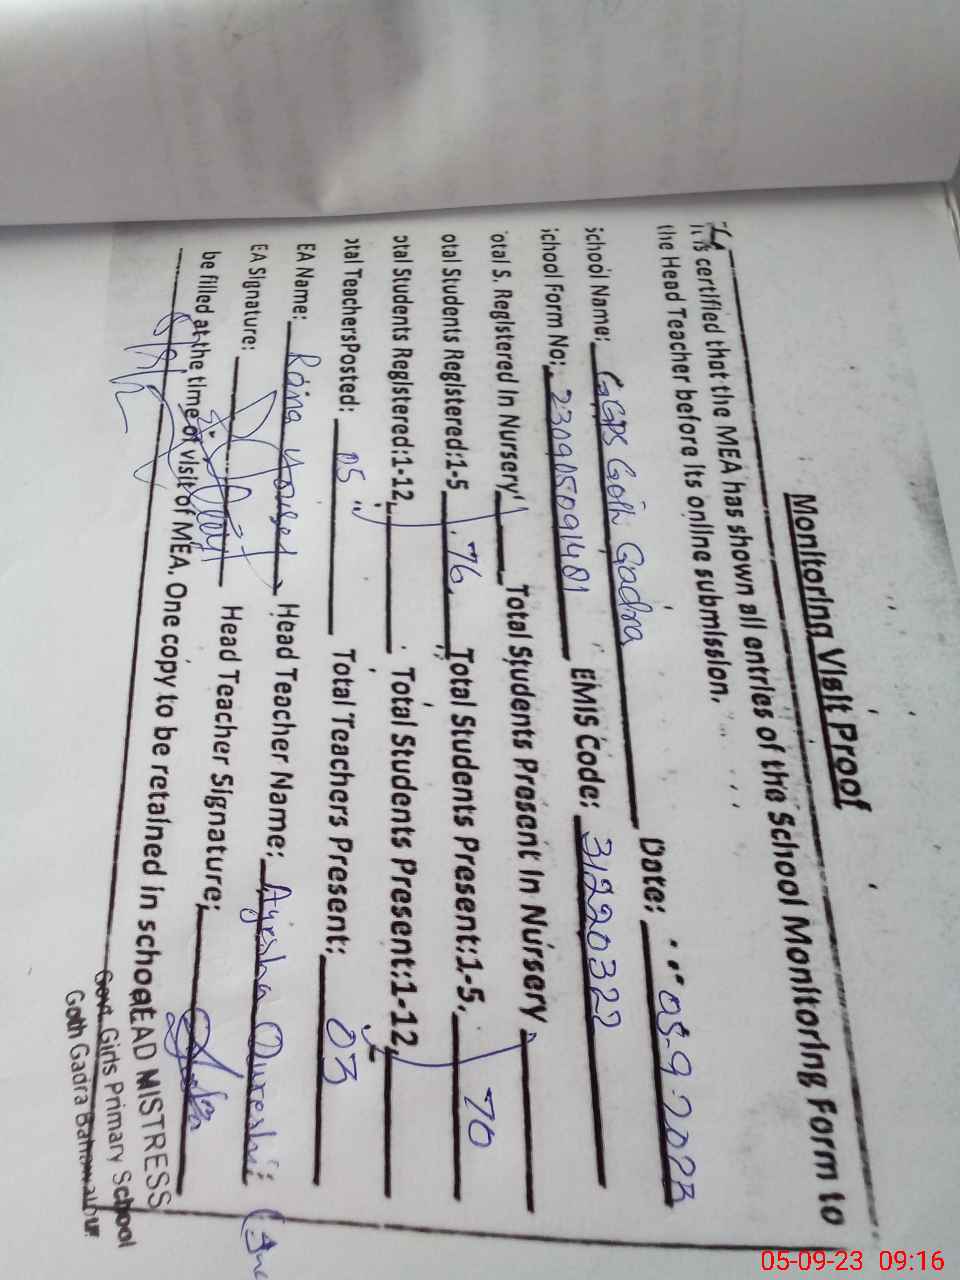 Monitoring Visit Proof
It is certified that the MEA has shown all entries of the School Monitoring Form to
the Head Teacher before its online submission.
School Name: GGPS Goth Gadra Date: 05-9-2023
School Form No: 230905091401 EMIS Code: 31220322
otal S. Registered in Nursery Total Students Present in Nursery
otal Students Registered:1-5 76 Total Students Present:1-5, 70
otal Students Registered:1-12 Total Students Present:1-12,
otal TeachersPosted: 05 Total Teachers Present: 03
EA Name: Rana Head Teacher Name: Ayesha Qureshi
EA Signature: Head Teacher Signature:
be filled at the time of visit of MEA. One copy to be retained in school
HEAD MISTRESS
Govt. Girls Primary School
Goth Gadra Bahawalpur
05-09-23 09:16